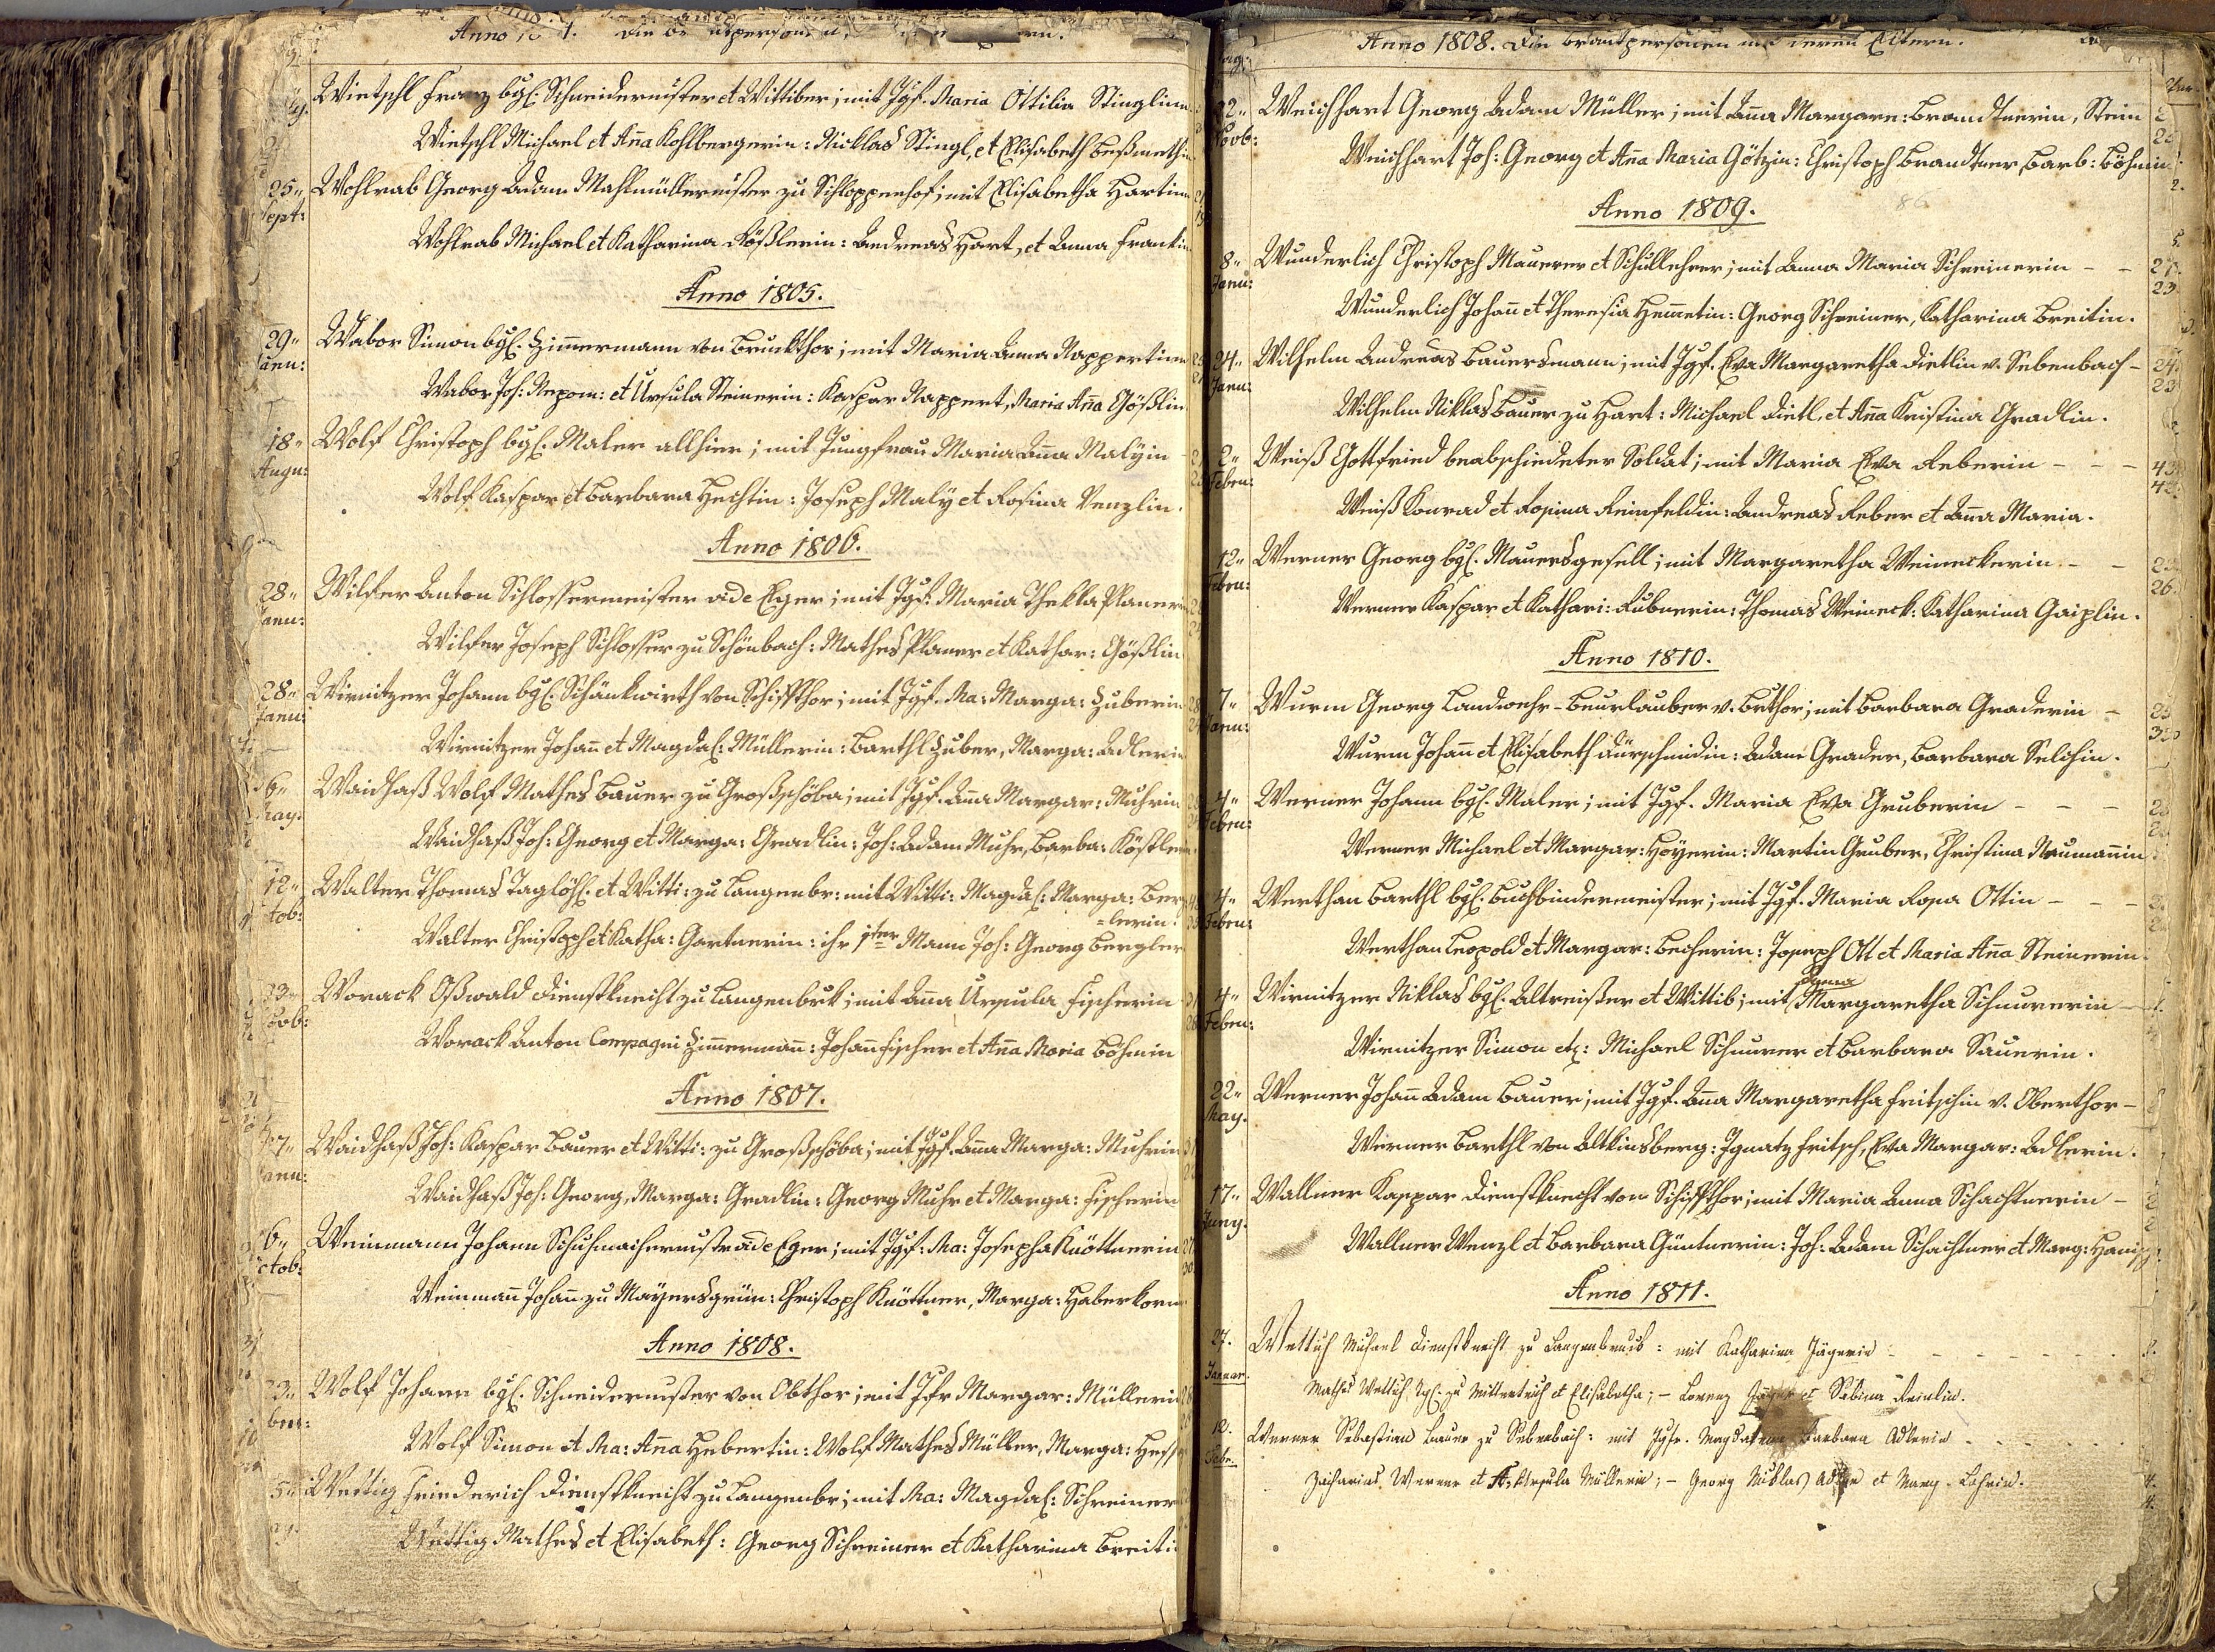 Anno
Wietschl Franz bgl. Schneidermster et Wittiber; mit Jgf. Maria Ottilia Stinglin
Wietschl Michael et Aña Kohlbergerin: Nicklas Stingl, et Elisabeth
25" Sept: Wohlrab Georg Adam Mahlmüllermster zu Schloppenhof; mit Elisabetha Hartin
Wohlrab Michael et Katharina Rößlerin: Andreas Hart, et Anna Frankin
Anno 1805.
29" Janu: Wabor Simon bgl. Zim̄ermann von Bruckthor; mit Maria Anna Nappertin
Wabor Joh: Nepom: et Ursula Steinerin: Kaspar Nappert, Maria Aña Gößlin
18" Augu: Wolf Christoph bgl. Maler allhier; mit Jungfrau Maria Aña Malyin
Wolf Kaspar et Barbara Hechtin: Joseph Maly et Rosina Venzlin.
Anno 1806.
28" Janu: Wilfer Anton Schlossermeister ade Eger; mit Jgf. Maria Thekla Planer
Wilfer Joseph Schlosser zu Schönbach: Mathes Planer et Kathar: Gößlin
28" Janu: Wirnitzer Johann bgl. Schänkwirth von Schiffthor; mit Jgf. Ma: Marga: Zuberin
Wirnitzer Johañ et Magdal: Müllerin: Barthl Zuber, Marga: Adlerin
6" May. Waidhaß Wolf Mathes Bauer zu Großschöba; mit Jgf. Aña Margar: Muhrin
Waidhaß Joh: Georg et Marga: Gradlin: Joh: Adam Muhr, Barba: Köstler
12" tob: Walter Thomas Taglöh. et Witti: zu Langenbr: mit Witti: Magdal: Marga: Berg
=lerin.
Walter Christoph et Katha: Gartnerin: ihr 1ter Mann Joh: Georg Bergler
23" Worack Oßwald Dienstknecht zu Langenbruk; mit Aña Ursula Fischerin
Worack Anton Compagni Zim̄ermañ: Johañ Fischer et Aña Maria Böhmin
Anno 1807.
Janu: Waidhaß Joh: Kaspar Bauer et Witti: zu Großschöba; mit Jgf. Aña Marga: Muhrin
Waidhaß Joh: Georg, Marga: Gradlin: Georg Muhr et Marga: Fischerin
6" ctob: Weinmann Johann Schuhmachermstr ade Eger; mit Jgf. Ma: Josepha Knöttnerin
Weinmañ Johañ zu Mayersgrün: Christoph Knöttner, Marga: Haberkorn
Anno 1808.
23" Wolf Johann bgl. Schneidermster von Obthor; mit Jfr Margar: Müllerin
Wolf Simon et Ma: Aña Hebertin: Wolf Mathes Müller, Marga: Hess
Wettig Friederich Dienstknecht zu Langenbr; mit Ma: Magdal: Schreiner
Wettig Mathes et Elisabeth: Georg Schreiner et Katharina Breiti
Anno 1808. Die Brautpersonen und deren Eltern.
22" Novb: Weichhart Georg Adam Müller; mit Aña Margare: Brandtnerin, Stein
Weichhart Joh: Georg et Aña Maria Götzin: Christoph Brandtner, Barb: Böhmin
Anno 1809. 86
8" Janu: Wunderlich Christoph Maurer et Schullehrer; mit Anna Maria Schreinerin - - 27. 23.
Wunderlich Johañ et Theresia Hem̄etin: Georg Schreiner, Katharina Breitin.
24" Janu: Wilhelm Andreas Bauersmann; mit Jgf. Eva Margaretha Dietlin v. Sebenbach - 24. 23
Wilhelm Niklas Bauer zu Hart: Michael Dietl, et Aña Kristina Gradlin.
Febru: Weiß Gottfried beabschiedeter Soldat; mit Maria Eva Reberin - - - 43 42.
Weiß Konrad et Rosina Reinfeldin: Andreas Reber et Aña Maria.
12" Febru: Werner Georg bgl. Mauersgesell; mit Margaretha Weineckerin - - 26.
Werner Kaspar et Kathari: Rubnerin: Thomas Weineck: Katharina Gaiplin.
Anno 1810.
7" Janu: Wurm Georg Landwehr-Beurlauber v. Bruthor; mit Barbara Graderin -
Wurm Johañ et Elisabeth Dürschmidin: Adam Grader, Barbara Selchin.
4" Febru: Werner Johann bgl. Maler; mit Jgf. Maria Eva Gruberin - - -
Werner Michael et Margar: Höyerin: Martin Gruber, Christina Naumañin
4" Febru: Werthan Barthl bgl. Buchbindermeister; mit Jgf. Maria Rosa Ottin - - -
Werthan Leopold et Margar: Becherin: Joseph Ott et Maria Aña Steinerin
4" Febru: Wirnitzer Niklas bgl. Altreißer et Wittib; mit Margaretha Schnurerin -
Wirnitzer Simon etz: Michael Schnurer et Barbara Sauerin.
22" May. Werner Johañ Adam Bauer; mit Jgf. Aña Margaretha Fritschin v. Oberthor -
Werner Barthl von Altkinsberg: Ignatz Fritsch, Eva Margar: Adlerin.
17" Juny. Wallner Kaspar Dienstknecht von Schiffthor; mit Maria Anna Schachtnerin -
Wallner Wenzl et Barbara Güntnerin: Joh: Adam Schachtner et Marg:
Anno 1811.
27. Januar. Wettich Michael Dienstknecht zu Langenbruck: mit Katharina Jägerin
Mathes Wettich, zu Mitterteich et Elisabetha; - Lorenz Jäger et Sabina Reinlin.
12. Febr. Werner Sebastian Bauer zu Sebenbach: mit Jgfr. Magdalena Barbara Adlerin
Zacharias Werner et A: Ursula Müllerin; - Georg Nicklas Adler et Marg. Lehrin.